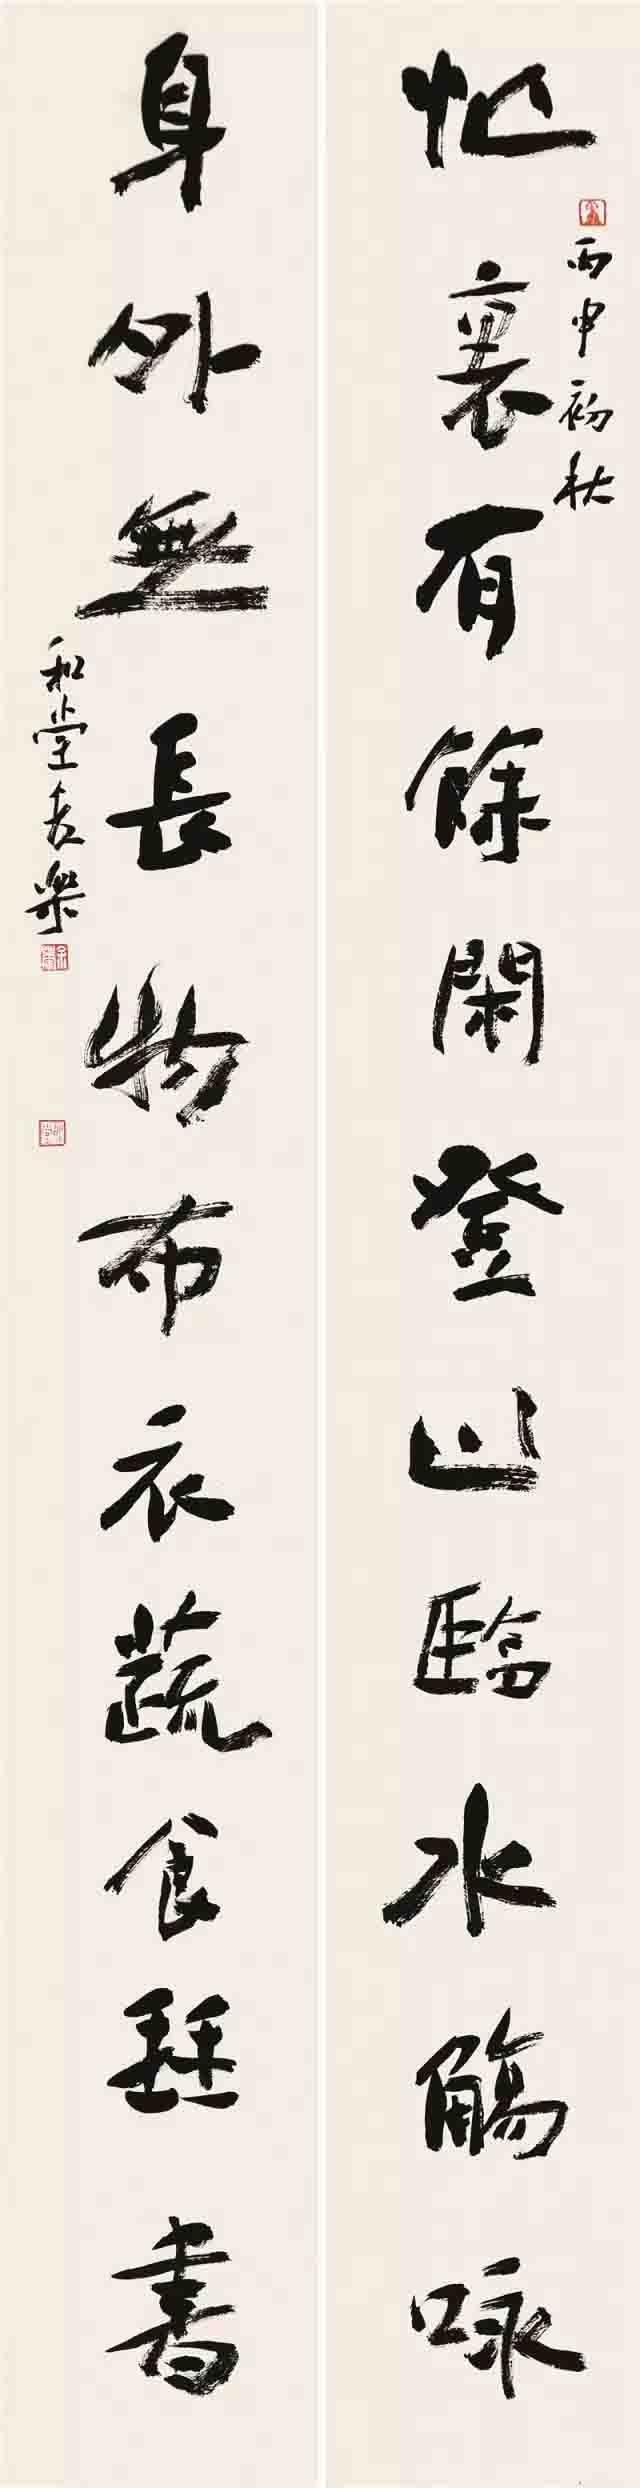 忙裏有餘閑登山臨水觴咏
丙申初秋
身外無長物布衣蔬食琴書
和堂
樂